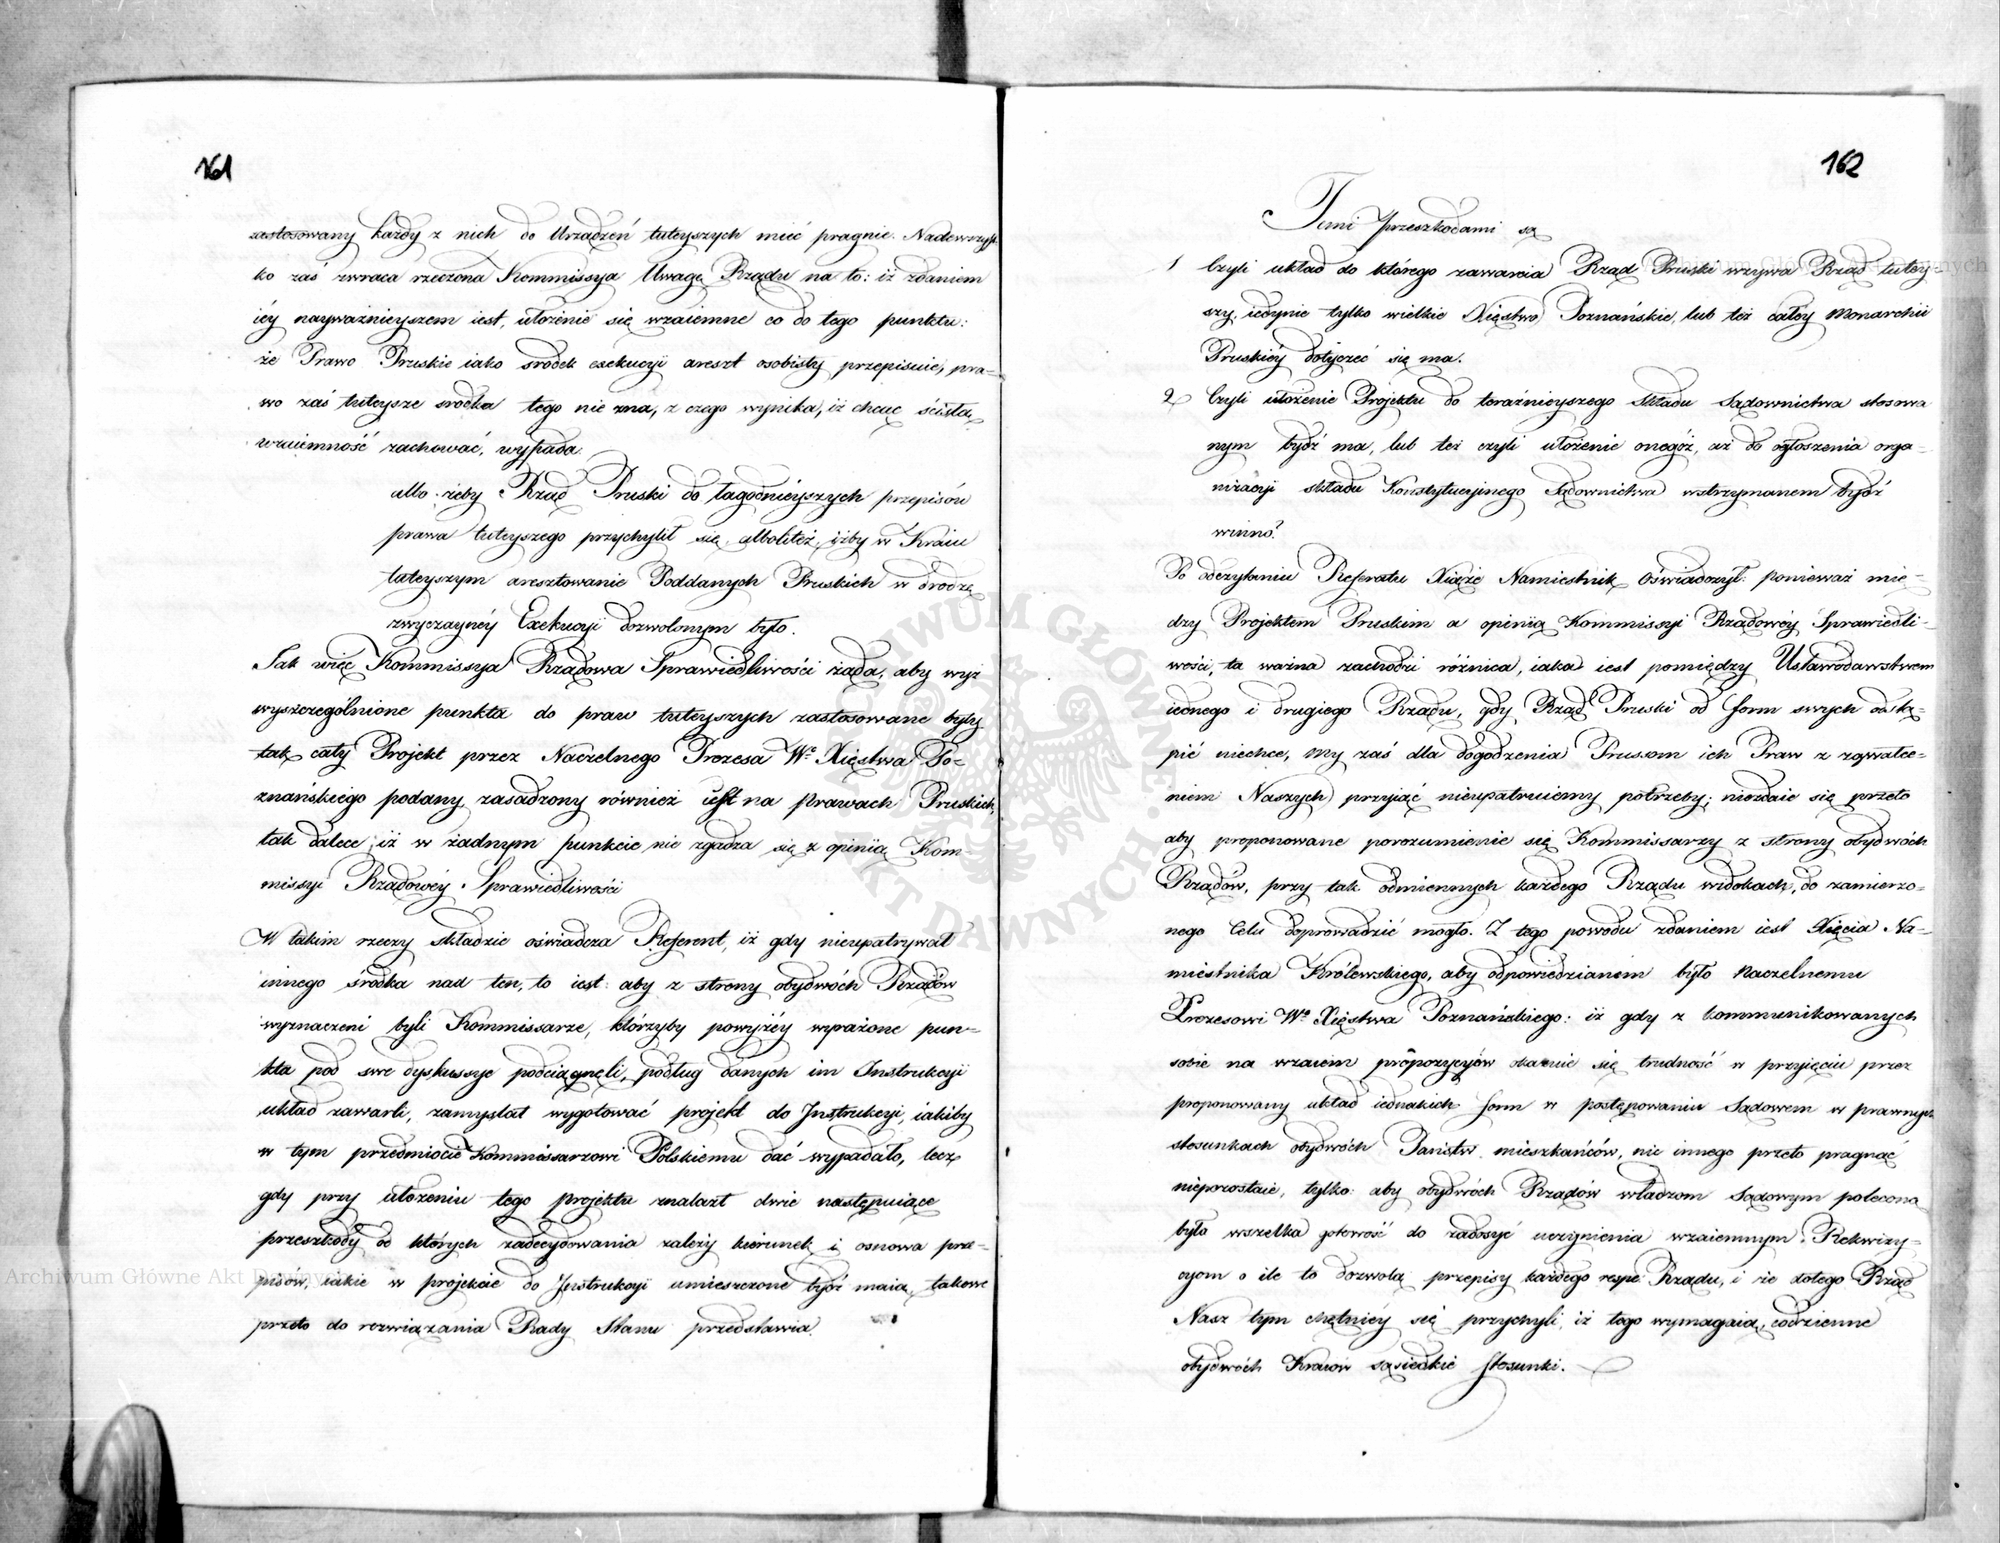 161
zastosowany każdy z nich do Urządzeń tuteyszych mieć pragnie. Nadewszyst-
ko zaś zwraca rzeczona Kommissya Uwagę Rządu na to: iż zdaniem
iéy nayważnieyszem iest, ułożenie się wzaiemne co do tego punktu:
że Prawo Pruskie iako środek exekucyi areszt osobisty przepisuie, pra-
wo zaś tuteysze środka tego nie zna, z czego wynika, iż chcąc ścisłą
wzaiemność zachować, wypada
albo żeby Rząd Pruski do łagodnieyszych przepisów
prawa tuteyszego przychylił się albo liteż, iżby w Kraiu
tuteyszym aresztowanie Poddanych Pruskich w drodze
zwyczaynéy Exekucyi dozwolonym było.
Jak więc Kommissya Rządowa Sprawiedliwości żąda, aby wyż
wyszczególnione punkta do praw tuteyszych zastosowane były
tak cały Projekt przez Naczelnego Prezesa Wº Xięstwa Po-
znańskiego podany zasadzony również iest na Prawach Pruskich,
tak dalece iż w żadnym punkcie nie zgadza się z opinią Kom-
missyi Rządowéy Sprawiedliwości
W takim rzeczy składzie oświadcza Referent, iż gdy nieupatrywał
innego środka nad ten, to iest: aby z strony obydwóch Rządów
wyznaczeni byli Kommissarze, którzyby powyżéy wyrażone pun-
kta pod swe dyskussye podciągnęli, podług danych im Instrukcyi
układ zawarli, zamyślał wygotować projekt do Instrukcyi, iakiby
w tym przedmiocie Kommissarzowi Polskiemu dać wypadało, lecz
gdy przy ułożeniu tego projektu znalazł dwie następuiące
przeszkody od których zadecydowania zależy kierunek i osnowa prze-
pisów, iakie w projekcie do Instrukcyi umieszczone bydź maią, takowe
przeto do rozwiązania Rady Stanu przedstawia.
162
Temi przeszkodami są
1 Czyli układ do którego zawarcia Rząd Pruski wzywa Rząd tutey-
szy, iedynie tylko wielkie Xięstwo Poznańskie, lub też całéy Monarchii
Pruskiéy dotyczeć się ma.
2 Czyli ułożenie Projektu do teraźnieyszego składu Sądownictwa stosowa
nym bydź ma, lub też czyli ułożenie onegóż, aż do ogłoszenia orga-
nizacyi składu Konstytucyinego Sądownictwa wstrzymanem bydź
winno?
Po odczytaniu Referatu Xiąże Namiestnik Oświadczył: ponieważ mię-
dzy Projektem Pruskim a opinią Kommissyi Rządowéy Sprawiedli-
wości, ta ważna zachodzi różnica, iaka iest pomiędzy Ustawodawstwem
iednego i drugiego Rządu, gdy Rząd Pruski od form swych odstą-
pić niechce, my zaś dla dogodzenia Prussom ich Praw z zgwałce-
niem Naszych przyiąć nieupatruiemy potrzeby; niezdaie się przeto
aby proponowane porozumienie się Kommissarzy z strony obydwóch
Rządów, przy tak odmiennych każdego Rządu widokach, do zamierzo-
nego Celu doprowadzić mogło. Z tego powodu zdaniem iest Xięcia Na-
miestnika Królewskiego, aby odpowiedzianém było Naczelnemu
Prezesowi Wº Xięstwa Poznańskiego: iż gdy z kommunikowanych
sobie na wzaiem propozycyów okazuie się trudność w przyięciu przez
proponowany układ iednakich form w postępowaniu Sądowem w prawnych
stosunkach obydwóch Państw mieszkańców, nic innego przeto pragnąć
niepozostaie, tylko: aby obydwóch Rządów władzom Sądowym polecona
była wszelka gotowość do zadosyć uczynienia wzaiemnym Rekwizy-
cyom o ile to dozwolą przepisy każdego respe Rządu, i że do tego Rząd
Nasz tym chętniéy się przychyli, iż tego wymagaią codzienne
obydwóch Kraiów sąsiedzkie stosunki.
Archiwum Główne Akt Dawnych
Archiwum Główne Akt Dawnych
ARCHIWUM GŁÓWNE AKT DAWNYCH